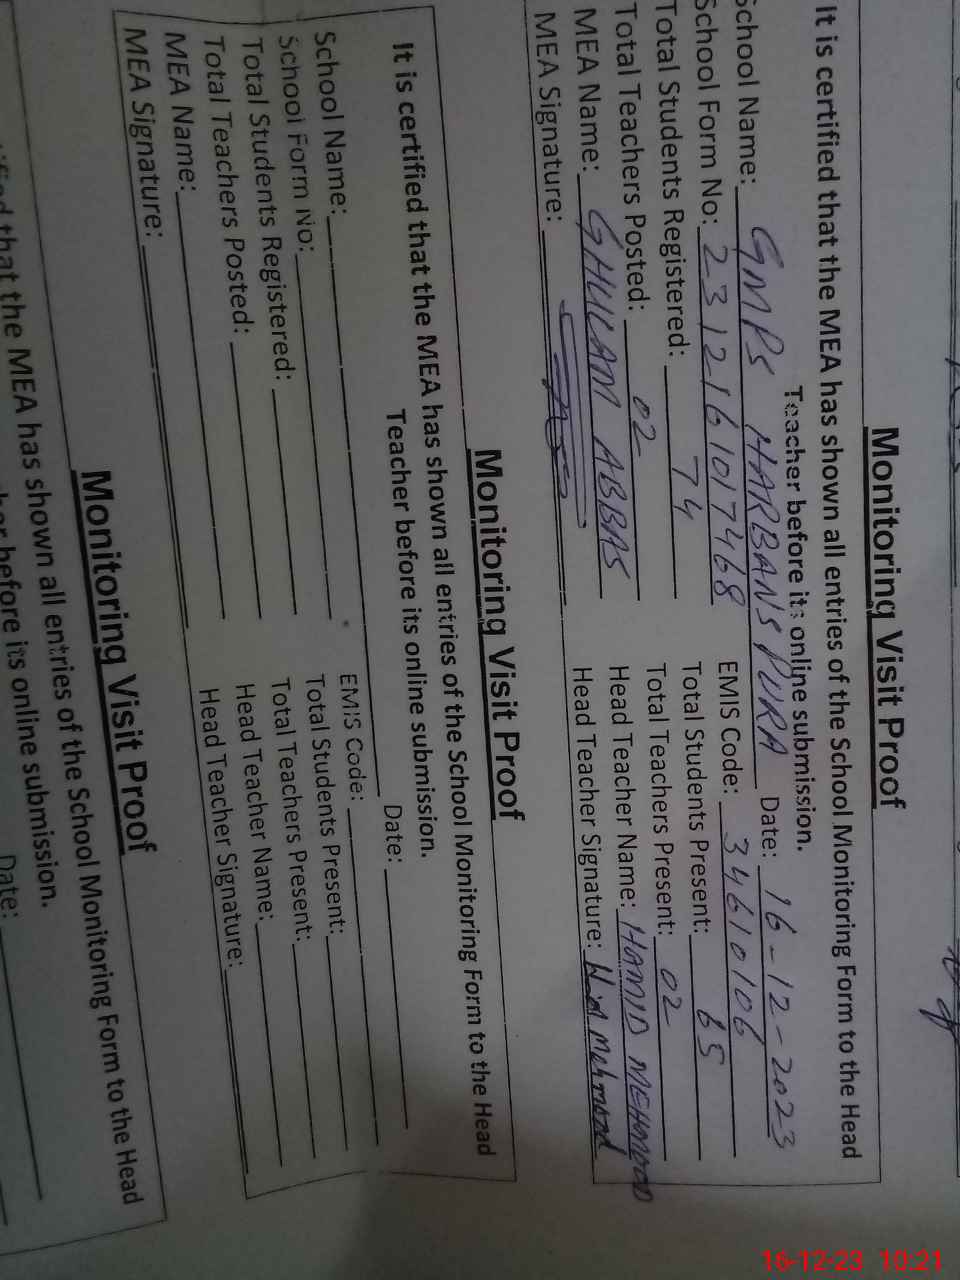 Monitoring Visit Proof
It is certified that the MEA has shown all entries of the School Monitoring Form to the Head
Teacher before its online submission.
School Name: GMPS HARBANSPURA Date: 16-12-2023
School Form No: 2312161017468 EMIS Code: 34610106
Total Students Registered: 74 Total Students Present: 65
Total Teachers Posted: 02 Total Teachers Present: 02
MEA Name: GHULAM ABBAS Head Teacher Name: HAMID MEHMOOD
MEA Signature: Head Teacher Signature:
Monitoring Visit Proof
It is certified that the MEA has shown all entries of the School Monitoring Form to the Head
Teacher before its online submission.
School Name: Date:
School Form No: EMIS Code:
Total Students Registered: Total Students Present:
Total Teachers Posted: Total Teachers Present:
MEA Name: Head Teacher Name:
MEA Signature: Head Teacher Signature:
Monitoring Visit Proof
that the MEA has shown all entries of the School Monitoring Form to the Head
before its online submission.
Date:
16-12-23 10:21